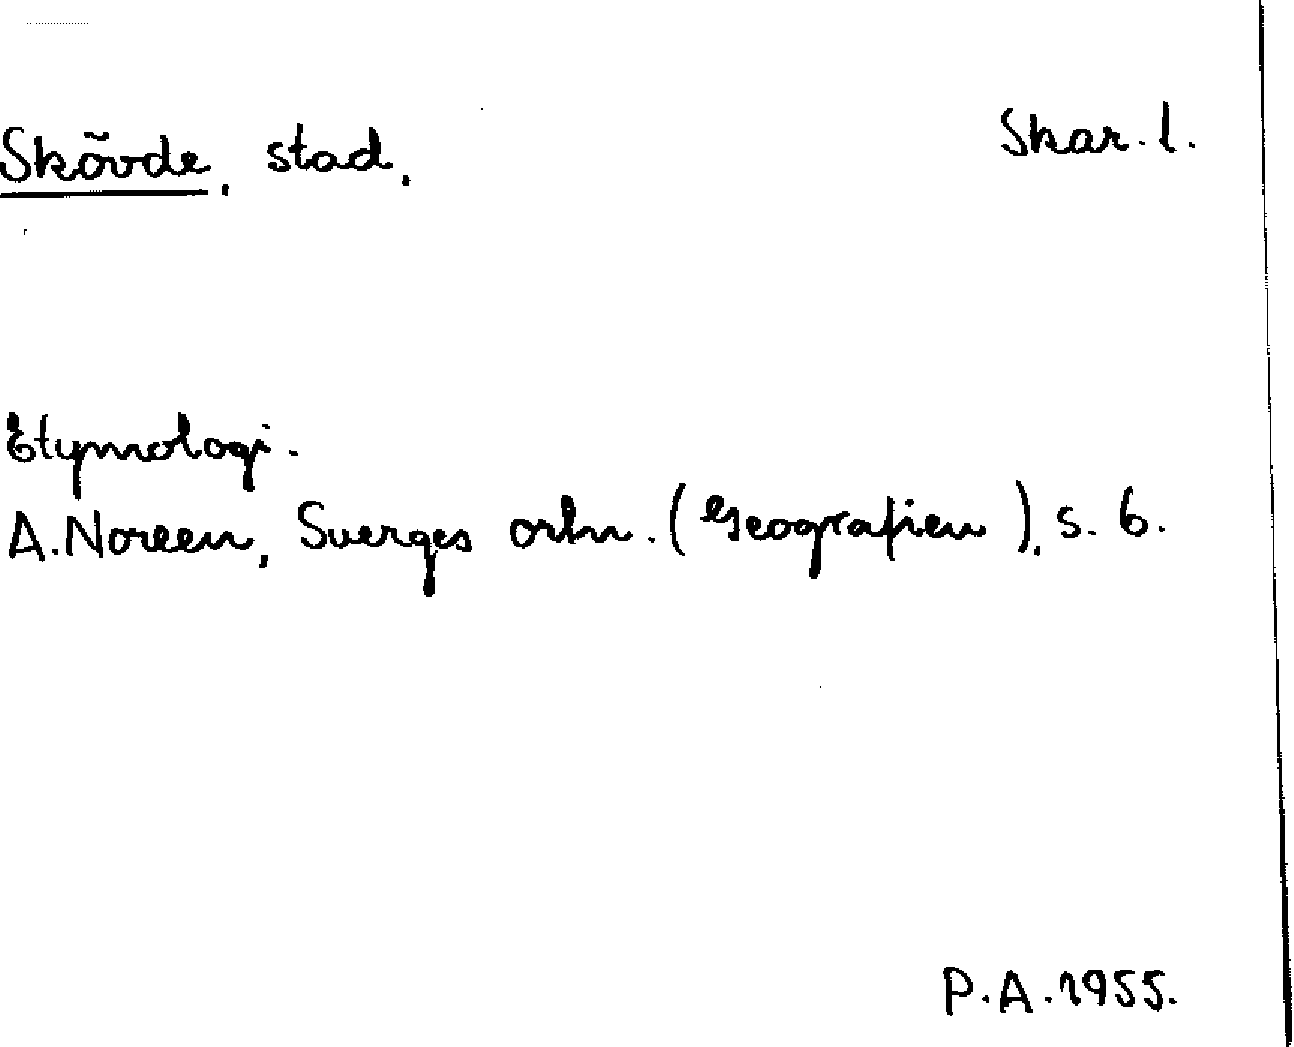 Skövde, stad. Skar. l.
Etymologi.
A. Noreen, Sverges ortn. (Geografien), s. 6.
P.A. 1955.